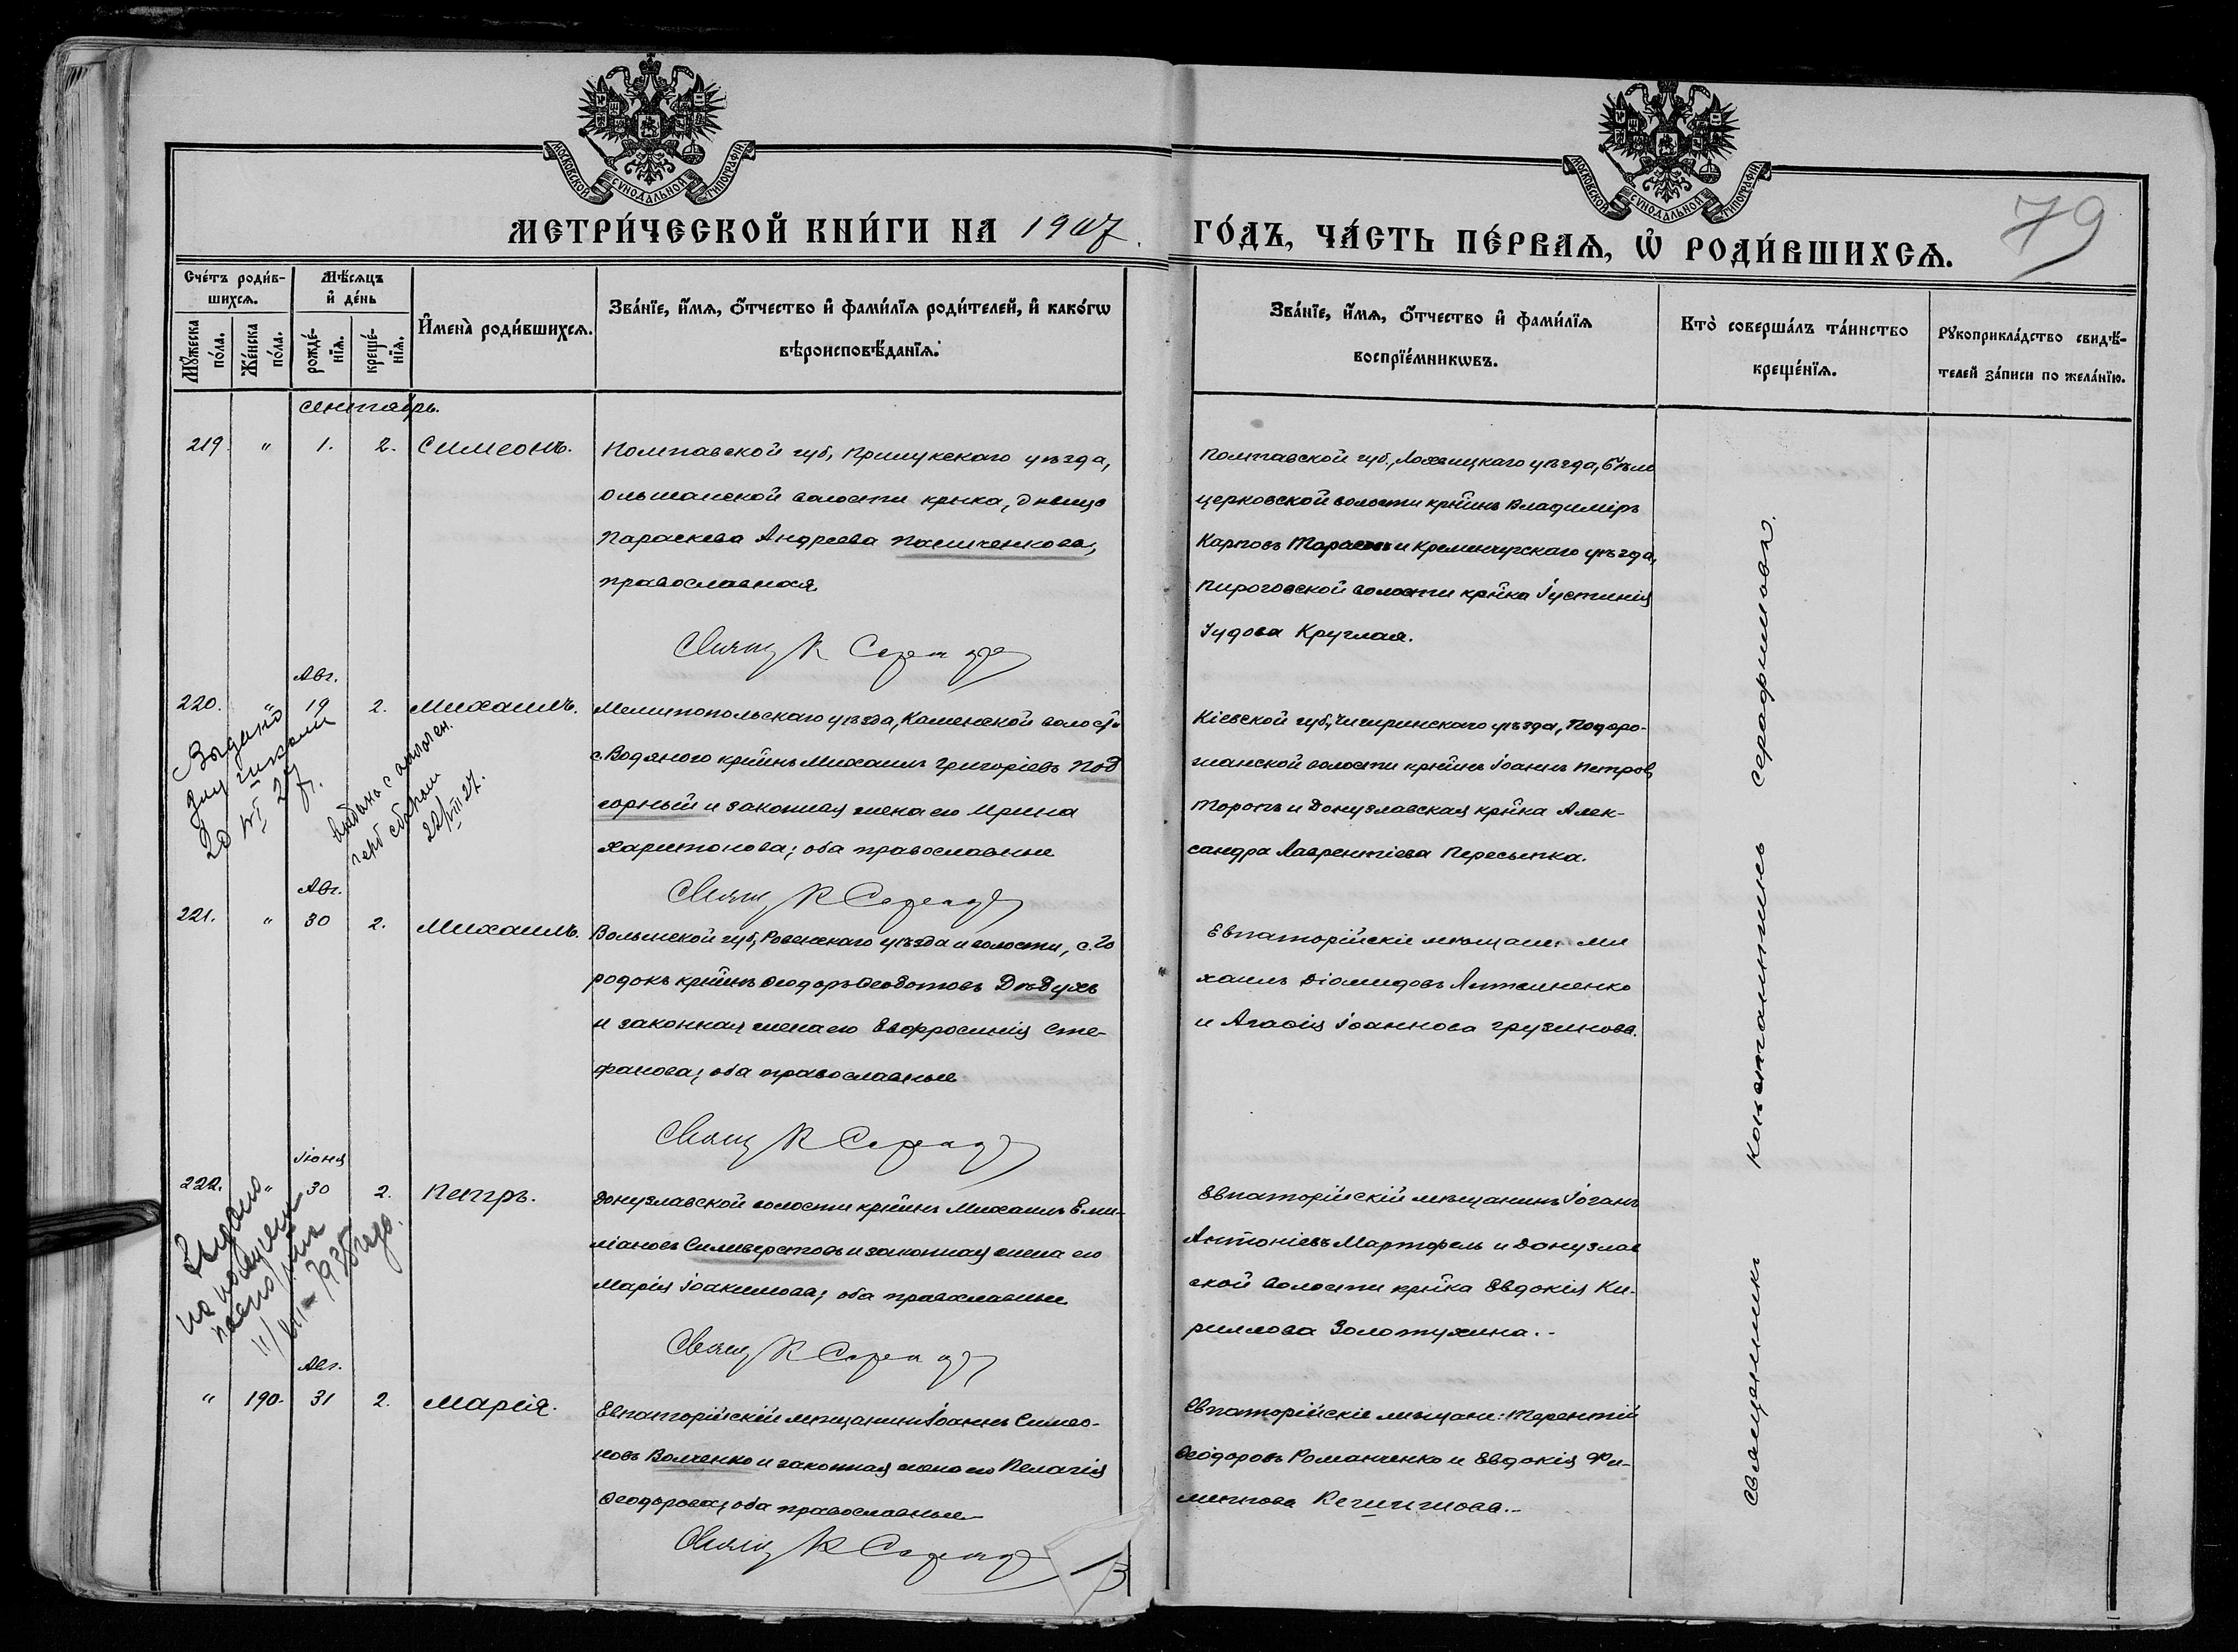 МОСКОВСКОЙ СѴНОДАЛЬНОЙ ТИПОГРАФІИ
МОСКОВСКОЙ СѴНОДАЛЬНОЙ ТИПОГРАФІИ
МЕТРИ́ЧЕСКОЙ КНИ́ГИ НА 1907.
ГО́ДЪ, ЧА́СТЬ ПЕ́РВАѦ, Ѡ҆ РОДИ́ВШИХСѦ.
79
Сче́тъ роди́в-
шихсѧ.
Мѣ́сѧцъ
и҆ де́нь
Мꙋ́жеска
по́ла.
Же́нска
по́ла.
рожде́-
нїѧ.
креще́-
нїѧ.
И҆мена̀ роди́вшихсѧ.
Зва́нїе, и҆́мѧ, ѻ҆́тчество и҆ фами́лїѧ роди́телей, и҆ како́гѡ
вѣроисповѣ́данїѧ.
Зва́нїе, и҆́мѧ, ѻ҆́тчество и҆ фами́лїѧ
воспрїе́мникѡвъ.
Кто̀ соверша́лъ та́инство
креще́нїѧ.
Рꙋкоприкла́дство свидѣ́-
телей за́писи по жела́нїю.
Сентябрь.
219. " 1. 2. Симеонъ.
Полтавской губ., Прилукскаго уѣзда,
Ольшанской волости кр-ка, дѣвица
Параскева Андреева Пасиченкова,
православная
Свящ К
Полтавской губ., Лохвицкаго уѣзда, Бѣло
церковской волости кр-йинъ Владиміръ
Карповъ и Кременчугскаго уѣзда,
Пироговской волости кр-йка Іустинія
Іудова Круглая.
Авг.
220. " 19 2. Михаилъ.
Мелитопольскаго уѣзда, Каменской волости
с Водяного кр-йинъ Михаилъ Григоріевъ Под
горный и законная жена его Ирина
Харитонова; оба православные
Свящ К
Кіевской губ., Чигиринскаго уѣзда, Подоро-
жанской волости кр-йинъ Іоаннъ Петровъ
Торопъ и Донузлавская кр-йка Алек-
сандра Лаврентіева Пересыпка.
Авг.
221. " 30 2. Михаилъ.
Волынской губ., Ровенскаго уѣзда и волости, с. Го
родокъ кр-йинъ Ѳеодоръ Ѳеодотовъ Дѣдухъ
и законная жена его Евфросинія Сте-
фанова; оба православные
Свящ К
Евпаторійскіе мѣщане: Ми
хаилъ Діомидовъ
и Агаѳія Іоаннова Грузинова.
Іюня
222. " 30 2. Петръ.
Донузлавской волости кр-йинъ Михаилъ Еми-
ліановъ Силиверстовъ и законная жена его
Марія Іоакимова; оба православные
Свящ К
Евпаторійскій мѣщанинъ Іоганъ
Антоніевъ Мартофель и Донузлав
ской волости кр-йка Евдокія Ки-
риллова Золотухина.
Авг.
" 190. 31 2. Марія.
Евпаторійскій мѣщанинъ Іоаннъ Симео-
новъ Волченко и законная жена его Пелагія
Ѳеодорова; оба православные
Свящ К
Евпаторійскіе мѣщане: Терентій
Ѳеодоровъ Романченко и Евдокія Фи-
липпова
Священникъ Константинъ Серафимовъ.
Выдано
20 VI 27 г.
22/VIII 27.
Выдано
11/VIII - 1935 года.